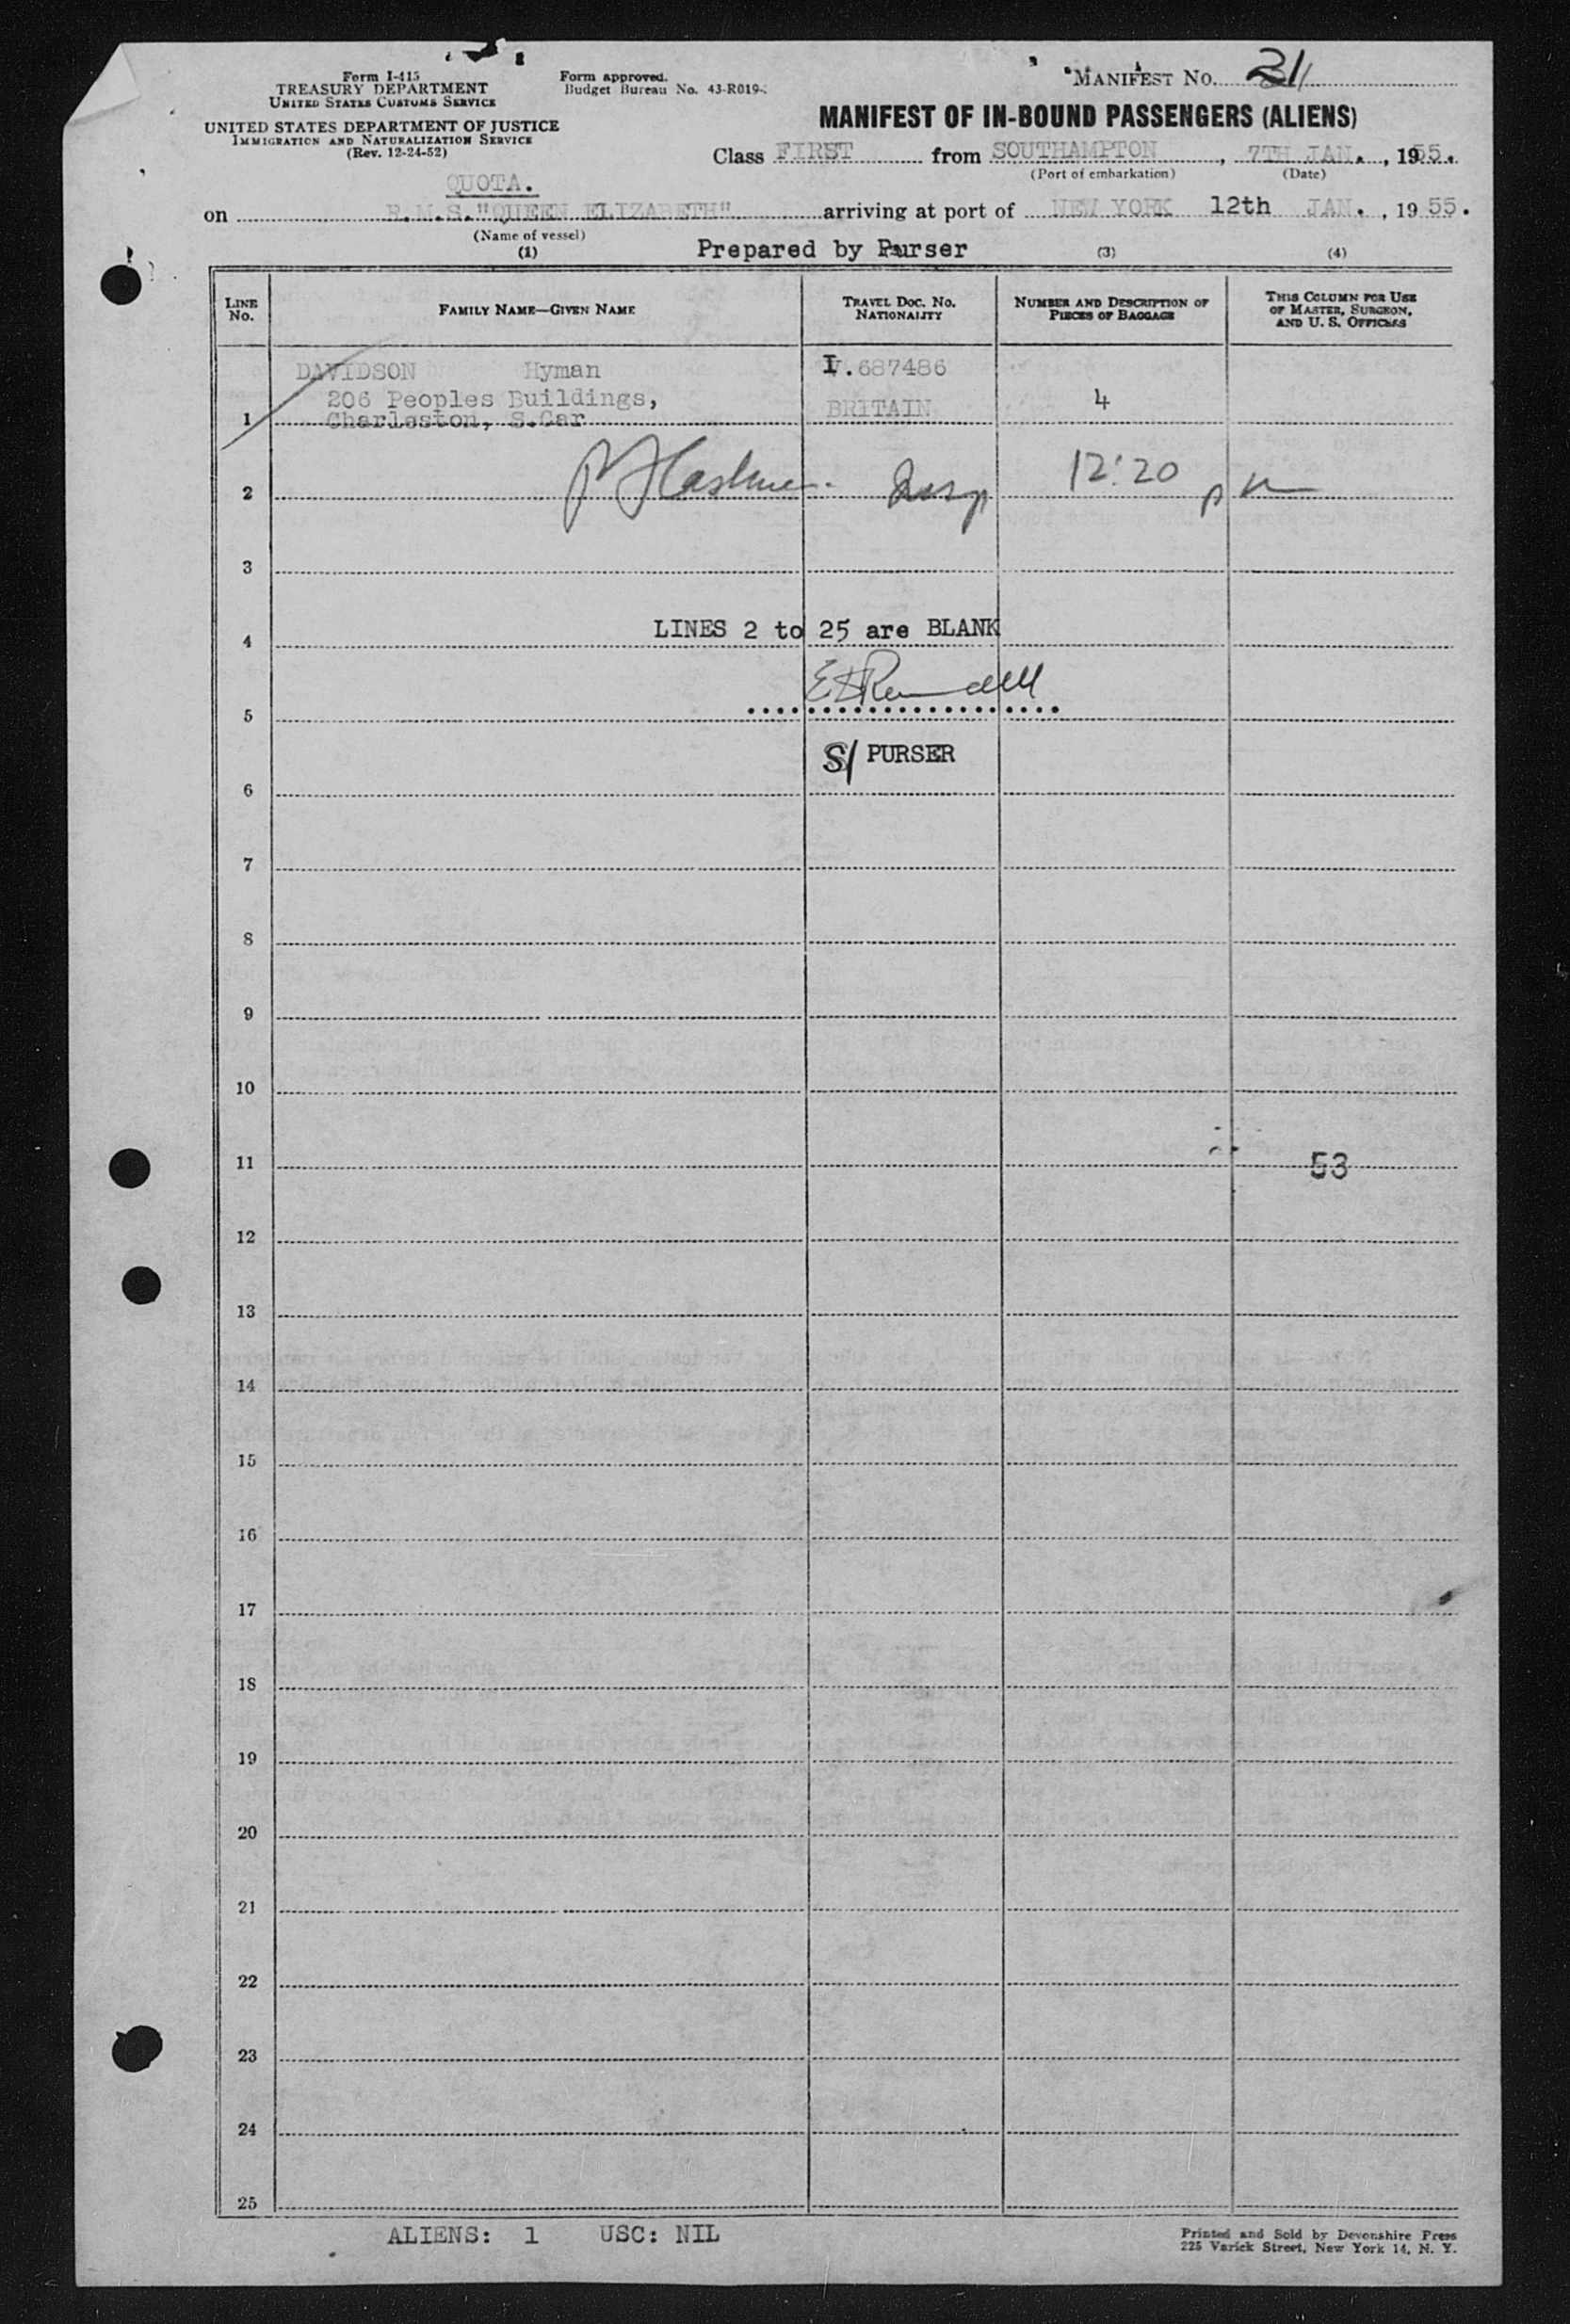 Form I-415
TREASURY DEPARTMENT
UNITED STATES CUSTOMS SERVICE
Form approved.
Budget Bureau No. 43-R019-
MANIFEST No.
UNITED STATES DEPARTMENT OF JUSTICE
IMMIGRATION AND NATURALIZATION SERVICE
(Rev. 12-24-52)
MANIFEST OF IN-BOUND PASSENGERS (ALIENS)
Class FIRST from SOUTHAMPTON, 7TH JAN., 1955.
(Port of embarkation) (Date)
QUOTA.
on R.M.S."QUEEN ELIZABETH" arriving at port of NEW YORK 12th JAN., 1955.
(Name of vessel)
(1) Prepared by Purser (3) (4)
LINE No. FAMILY NAME—GIVEN NAME TRAVEL DOC. NO. NATIONALITY NUMBER AND DESCRIPTION OF PIECES OF BAGGAGE THIS COLUMN FOR USE OF MASTER, SURGEON, AND U. S. OFFICERS
DAVIDSON Hyman I.687486
206 Peoples Buildings, BRITAIN 4
1 Charleston, S.Car
2 Insp 12:20 pm
3
LINES 2 to 25 are BLANK
4
5
S/ PURSER
6
7
8
9
10
11 53
12
13
14
15
16
17
18
19
20
21
22
23
24
25
ALIENS: 1 USC: NIL
Printed and Sold by Devonshire Press
225 Varick Street, New York 14, N. Y.